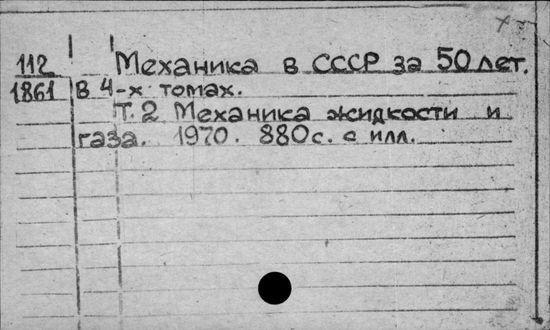 112 Механика в СССР за 50 лет.
1861 В 4-х томах.
Т. 2 Механика жидкости и
газа. 1970. 880с. с илл.